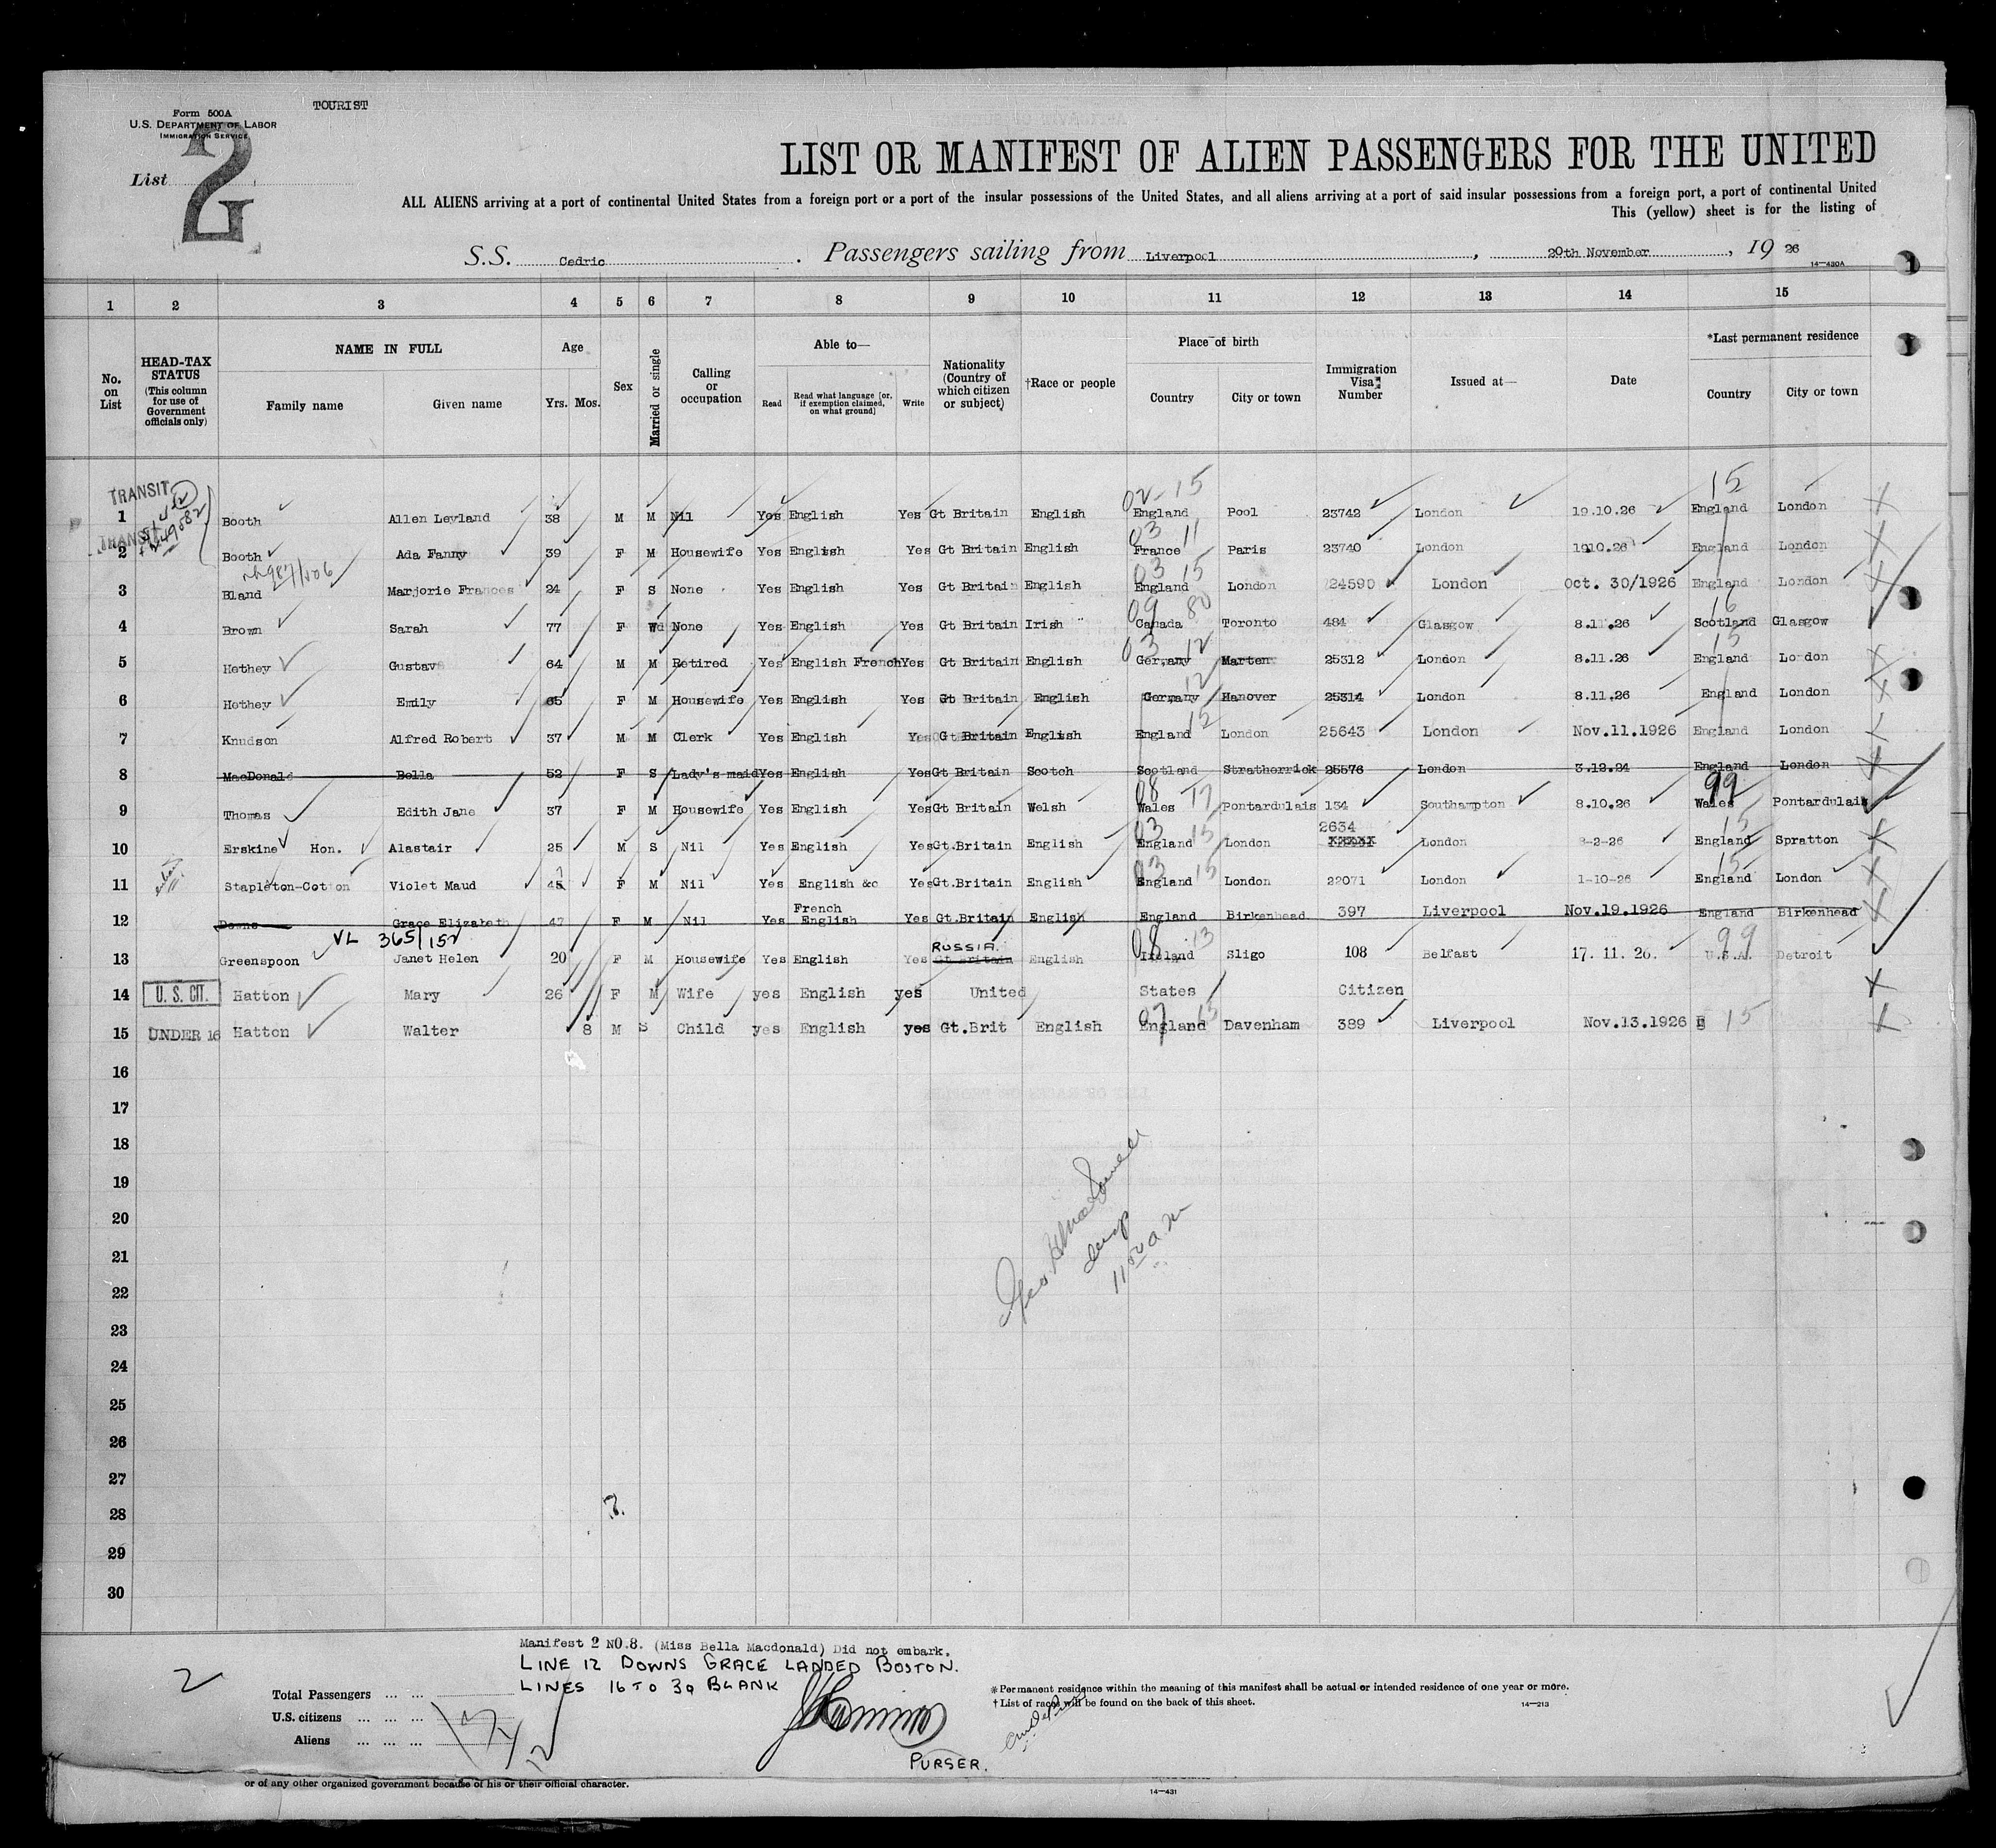 TOURIST
Form 500A
U.S. DEPARTMENT OF LABOR
IMMIGRATION SERVICE
List 2
LIST OR MANIFEST OF ALIEN PASSENGERS FOR THE UNITED
ALL ALIENS arriving at a port of continental United States from a foreign port or a port of the insular possessions of the United States, and all aliens arriving at a port of said insular possessions from a foreign port, a port of continental United
This (yellow) sheet is for the listing of
S.S. Cedric . Passengers sailing from Liverpool , 20th November , 19 26
14—430A
1 2 3 4 5 6 7 8 9 10 11 12 13 14 15
No. on List
HEAD-TAX STATUS (This column for use of Government officials only)
NAME IN FULL
Family name Given name
Age
Yrs. Mos.
Sex
Married or single
Calling or occupation
Able to—
Read Read what language [or, if exemption claimed, on what ground] Write
Nationality (Country of which citizen or subject)
†Race or people
Place of birth
Country City or town
Immigration Visa Number
Issued at—
Date
*Last permanent residence
Country City or town
TRANSIT 02-15 15
1 Booth Allen Leyland 38 M M Nil Yes English Yes Gt Britain English England Pool 23742 London 19.10.26 England London
TRANSIT 03 11
2 Booth Ada Fanny 39 F M Housewife Yes English Yes Gt Britain English France Paris 23740 London 1910.26 England London
03 15
3 Bland Marjorie Frances 24 F S None Yes English Yes Gt Britain English England London 24590 London Oct. 30/1926 England London
09 80 16
4 Brown Sarah 77 F Wd None Yes English Yes Gt Britain Irish Canada Toronto 484 Glasgow 8.11.26 Scotland Glasgow
03 12 15
5 Hethey Gustav 64 M M Retired Yes English French Yes Gt Britain English Germany Marten 25312 London 8.11.26 England London
12
6 Hethey Emily 65 F M Housewife Yes English Yes Gt Britain English Germany Hanover 25314 London 8.11.26 England London
15
7 Knudson Alfred Robert 37 M M Clerk Yes English Yes Gt Britain English England London 25643 London Nov.11.1926 England London
8 MacDonald Bella 52 F S Lady's maid Yes English Yes Gt Britain Scotch Scotland Stratherrick 25576 London 3.12.24 England London
08 17 99
9 Thomas Edith Jane 37 F M Housewife Yes English Yes Gt Britain Welsh Wales Pontardulais 154 Southampton 8.10.26 Wales Pontardulais
03 15 2634 15
10 Erskine Hon. Alastair 25 M S Nil Yes English Yes Gt.Britain English England London XXXXX London 8-2-26 England Spratton
03 15 15
11 Stapleton-Cotton Violet Maud 45 F M Nil Yes English &c Yes Gt.Britain English England London 22071 London 1-10-26 England London
French
12 Downs Grace Elizabeth 47 F M Nil Yes English Yes Gt.Britain English England Birkenhead 397 Liverpool Nov.19.1926 England Birkenhead
VL 365/152 RUSSIA. 08 13 99
13 Greenspoon Janet Helen 20 F M Housewife Yes English Yes Gt Britain English Ireland Sligo 108 Belfast 17. 11. 26. U.S.A. Detroit
14 U. S. CIT. Hatton Mary 26 F M Wife yes English yes United States Citizen
07 13
15 UNDER 16 Hatton Walter 8 M S Child yes English yes Gt.Brit English England Davenham 389 Liverpool Nov.13.1926 E 15
16
17
18
19
20
21
22
23
24
25
26
27
28
29
30
11 50 a.m
Manifest 2 NO.8. (Miss Bella Macdonald) Did not embark.
LINE 12 DOWNS GRACE LANDED BOSTON.
LINES 16 TO 30 BLANK
2
Total Passengers ... ...
U.S. citizens ... ... ...
Aliens ... ... ...
PURSER.
*Permanent residence within the meaning of this manifest shall be actual or intended residence of one year or more.
†List of races will be found on the back of this sheet.
14—213
or of any other organized government because of his or their official character.
14—431